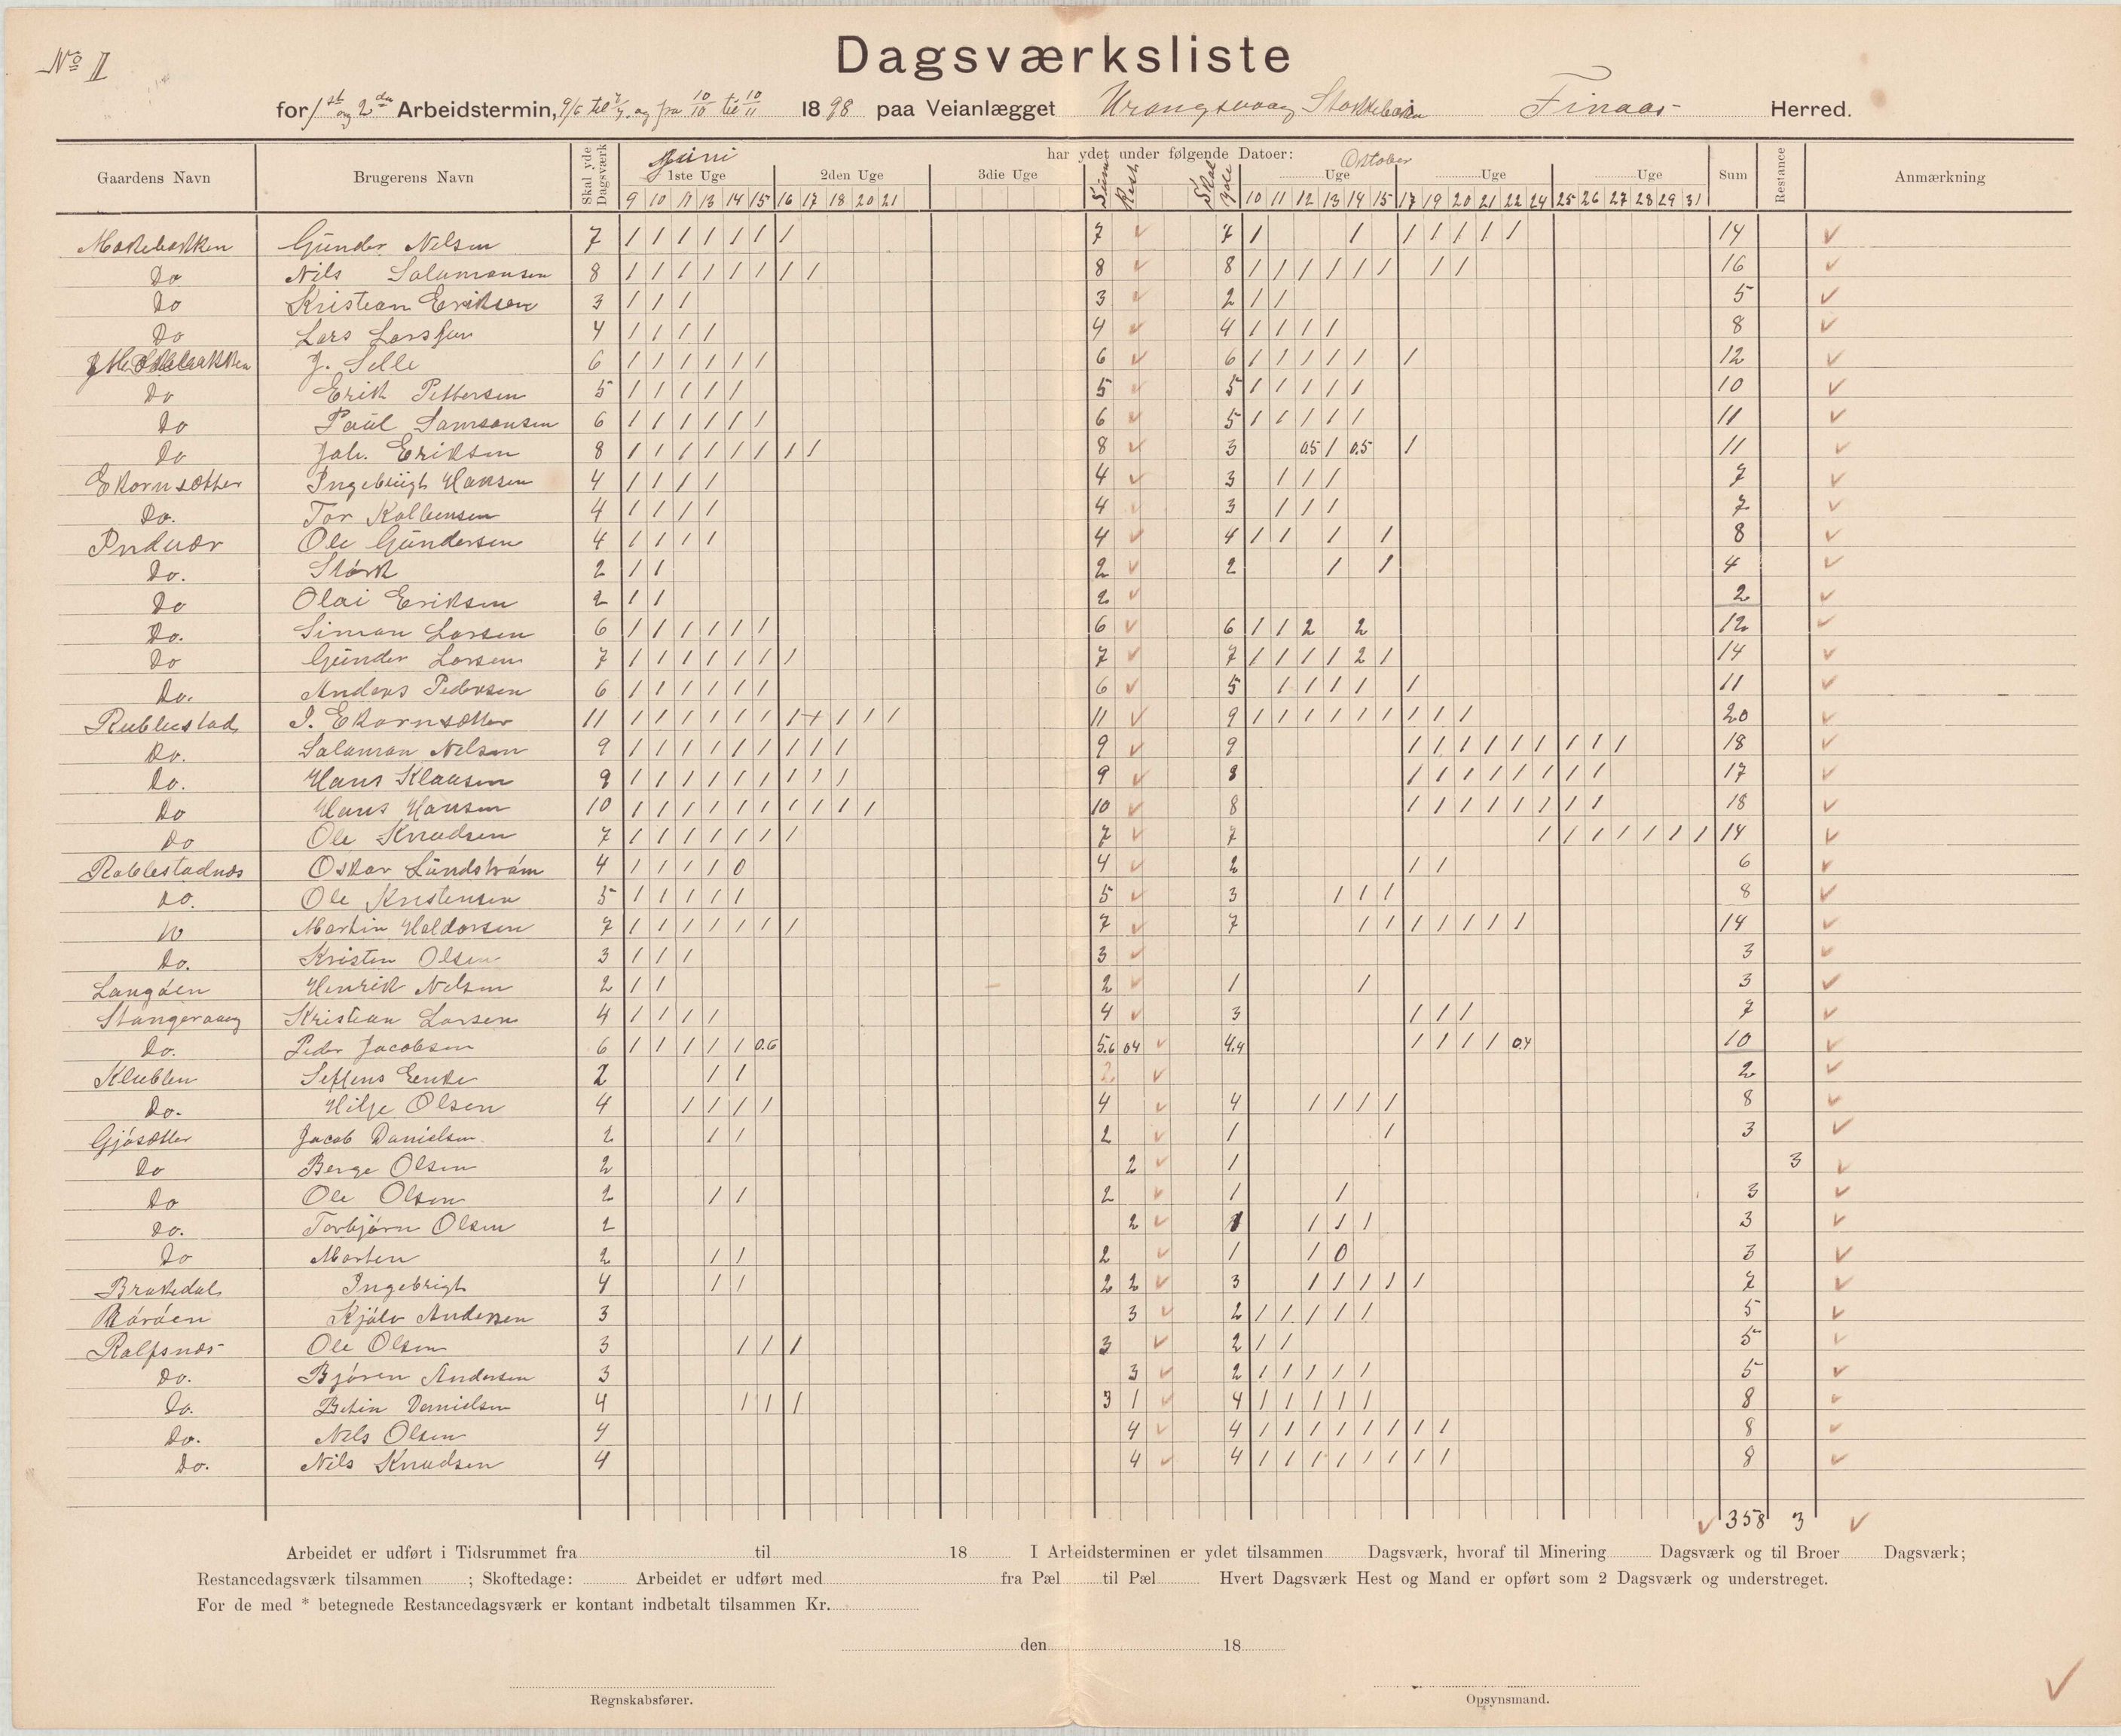 No II
Dagsværksliste
for 1ste og 2den Arbeidstermin, 9/6 til 7/7 og fra 10/10 til 10/11 1898 paa Veianlægget Urangsvaag Stokkebæk Finaas Herred.
Gaardens Navn Brugerens Navn Skal yde Dagsværk har ydet under følgende Datoer: Sum Restance Anmærkning
Juni Oktober
1ste Uge 2den Uge 3die Uge Sum Rest Skal yde Uge Uge Uge
9 10 11 13 14 15 16 17 18 20 21 10 11 12 13 14 15 17 19 20 21 22 24 25 26 27 28 29 31
Gunder Nelsen 7 / / / / / / / 7 7 / / / / / / / 14
Do Nils Salamonsen 8 / / / / / / / / 8 8 / / / / / / / / 16
Do Kristian Eriksen 3 / / / 3 2 / / 5
Do Lars Larssen 4 / / / / 4 4 / / / / 8
J. Selle 6 / / / / / / 6 6 / / / / / / 12
Do Erik Pettersen 5 / / / / / 5 5 / / / / / 10
Do Paul Samsonsen 6 / / / / / / 6 5 / / / / / 11
Do Joh. Eriksen 8 / / / / / / / / 8 3 0.5 / 0.5 / 11
Ekornsætter Ingebrigt Hansen 4 / / / / 4 3 / / / 7
Do. Tor Kolbensen 4 / / / / 4 3 / / / 7
Indvær Ole Gundersen 4 / / / / 4 4 / / / / 8
Do. Størk 2 / / 2 2 / / 4
Do Olai Eriksen 2 / / 2 2
Do. Simon Larsen 6 / / / / / / 6 6 / / 2 2 12
Do Gunder Larsen 7 / / / / / / / 7 7 / / / / 2 / 14
Do. Anders Pedersen 6 / / / / / / 6 5 / / / / / 11
Rubbestad J. Ekornsætter 11 / / / / / / / + / / / 11 9 / / / / / / / / / 20
Do. Salamon Nelsen 9 / / / / / / / / / 9 9 / / / / / / / / / 18
Do. Hans Klausen 9 / / / / / / / / / 9 8 / / / / / / / / 17
Do Hans Hansen 10 / / / / / / / / / / 10 8 / / / / / / / / 18
Do Ole Knudsen 7 / / / / / / / 7 7 / / / / / / / 14
Rabbestadnæs Oskar Lundstrøm 4 / / / / 0 4 2 / / 6
Do. Ole Kristensen 5 / / / / / 5 3 / / / 8
Do Martin Haldorsen 7 / / / / / / / 7 7 / / / / / / / 14
Do. Kristen Olsen 3 / / / 3 3
Langøen Henrik Nelsen 2 / / 2 1 / 3
Stangervaag Kristian Larsen 4 / / / / 4 3 / / / 7
Do. Peder Jacobsen 6 / / / / / 0.6 5.6 04 4.4 / / / / 0.4 10
Klubben Seffens Enke 2 / / 2 2
Do. Hilje Olsen 4 / / / / 4 4 / / / / 8
Gjøsætter Jacob Danielsen 2 / / 2 1 / 3
Do Berge Olsen 2 2 1 3
Do Ole Olsen 2 / / 2 1 / 3
Do. Torbjørn Olsen 2 2 1 / / / 3
Do Morten 2 / / 2 1 / 0 3
Brakedal Ingebrigt 4 / / 2 2 3 / / / / / 7
Børøen Kjølv Andersen 3 3 2 / / / / / 5
Rolfsnæs Ole Olsen 3 / / / 3 2 / / 5
Do. Bjøren Andersen 3 3 2 / / / / / 5
Do. Betin Danielsen 4 / / / 3 1 4 / / / / / 8
Do. Nels Olsen 4 4 4 / / / / / / / / 8
Do. Nils Knudsen 4 4 4 / / / / / / / / 8
358 3
Arbeidet er udført i Tidsrummet fra til 18 I Arbeidsterminen er ydet tilsammen Dagsværk, hvoraf til Minering Dagsværk og til Broer Dagsværk;
Restancedagsværk tilsammen ; Skoftedage: Arbeidet er udført med fra Pæl til Pæl Hvert Dagsværk Hest og Mand er opført som 2 Dagsværk og understreget.
For de med * betegnede Restancedagsværk er kontant indbetalt tilsammen Kr.
den 18
Regnskabsfører. Opsynsmand.